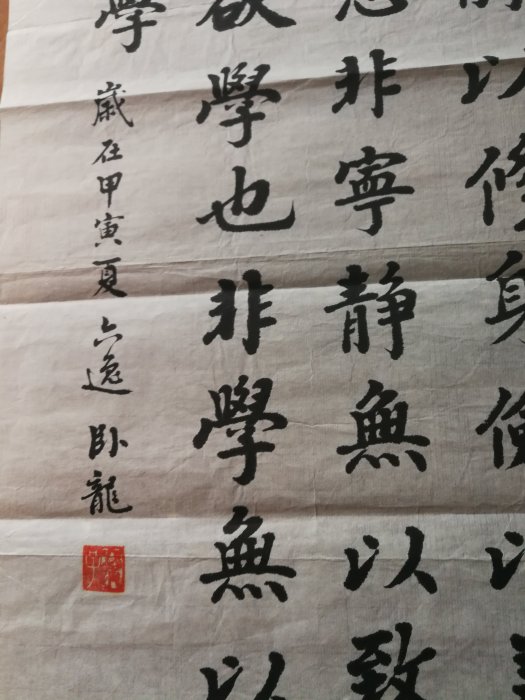 以修身儉以
志非寧靜無以致
欲學也非學無以
學
歲在甲寅夏六逸卧龍